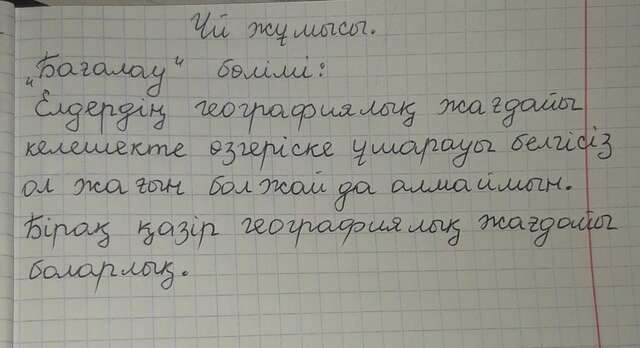 Үй жұмысы.
„Бағалау“ бөлімі:
Елдердің географиялық жағдайы
келешекте өзгеріске ұшарауы белгісіз
ол жағын болжай да алмаймын.
Бірақ қазір географиялық жағдайы
боларлық.